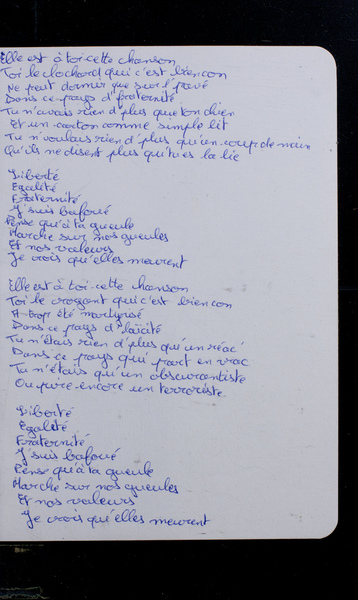 Elle est à toi cette chanson
Toi le clochard qui c'est bien con
Ne peut dormir que sur l'pavé
Dans ce pays d'fraternité
Tu n'avais rien d'plus que ton chien
Et un carton comme simple lit
Tu n'voulais rien d'plus qu'un coup de main
Qu'ils ne disent plus qu'tu es la lie
Liberté
Egalité
Fraternité
J'suis bafoué
Pense qu'à ta gueule
Marche sur nos gueules
Et nos valeurs
Je crois qu'elles meurent
Elle est à toi cette chanson
Toi le croyant qui c'est bien con
A trop été martyrisé
Dans ce pays d'laïcité
Tu n'étais rien d'plus qu'un réac'
Dans ce pays qui part en vrac
Tu n'étais qu'un obscurantiste
Ou pire encore un terroriste
Liberté
Egalité
Fraternité
J'suis bafoué
Pense qu'à ta gueule
Marche sur nos gueules
Et nos valeurs
Je crois qu'elles meurent